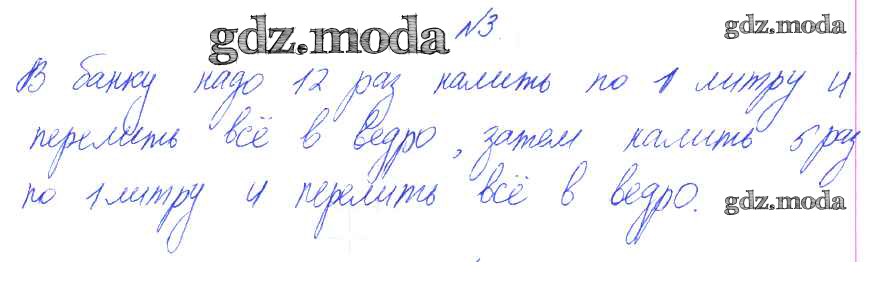 gdz.moda №3. gdz.moda
В банку надо 12 раз налить по 1 литру и
перелить всё в ведро, затем налить 5 раз
по 1 литру и перелить всё в ведро. gdz.moda